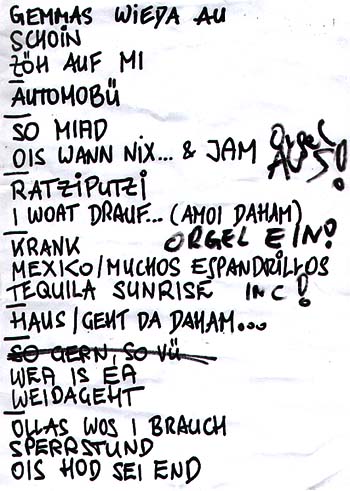 GEMMAS WIEDA AU
SCHOIN
ZÖH AUF MI
AUTOMOBÜ
SO MIAD
OIS WANN NIX... & JAM ORGEL AUS!
RATZIPUTZI
I WOAT DRAUF... (AMOI DAHAM)
KRANK ORGEL EIN!
MEXICO/MUCHOS ESPANDRILLOS
TEQUILA SUNRISE IN C!
HAUS/GEHT DA DAHAM...
SO GERN, SO VÜ
WEA IS EA
WEIDAGEHT
OLLAS WOS I BRAUCH
SPERRSTUND
OIS HOD SEI END